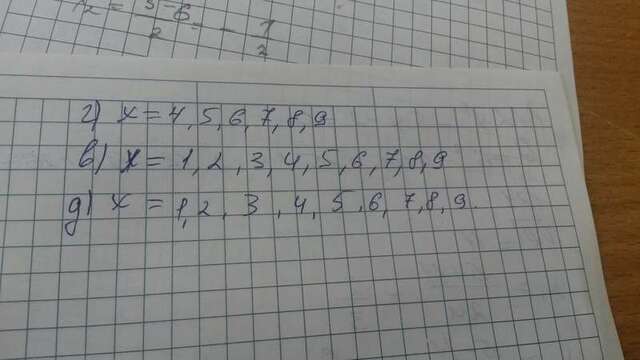 x₂ = 3-6/2 = - 1/2
г) x = 4, 5, 6, 7, 8, 9
в) x = 1, 2, 3, 4, 5, 6, 7, 8, 9
д) x = 1, 2, 3, 4, 5, 6, 7, 8, 9.